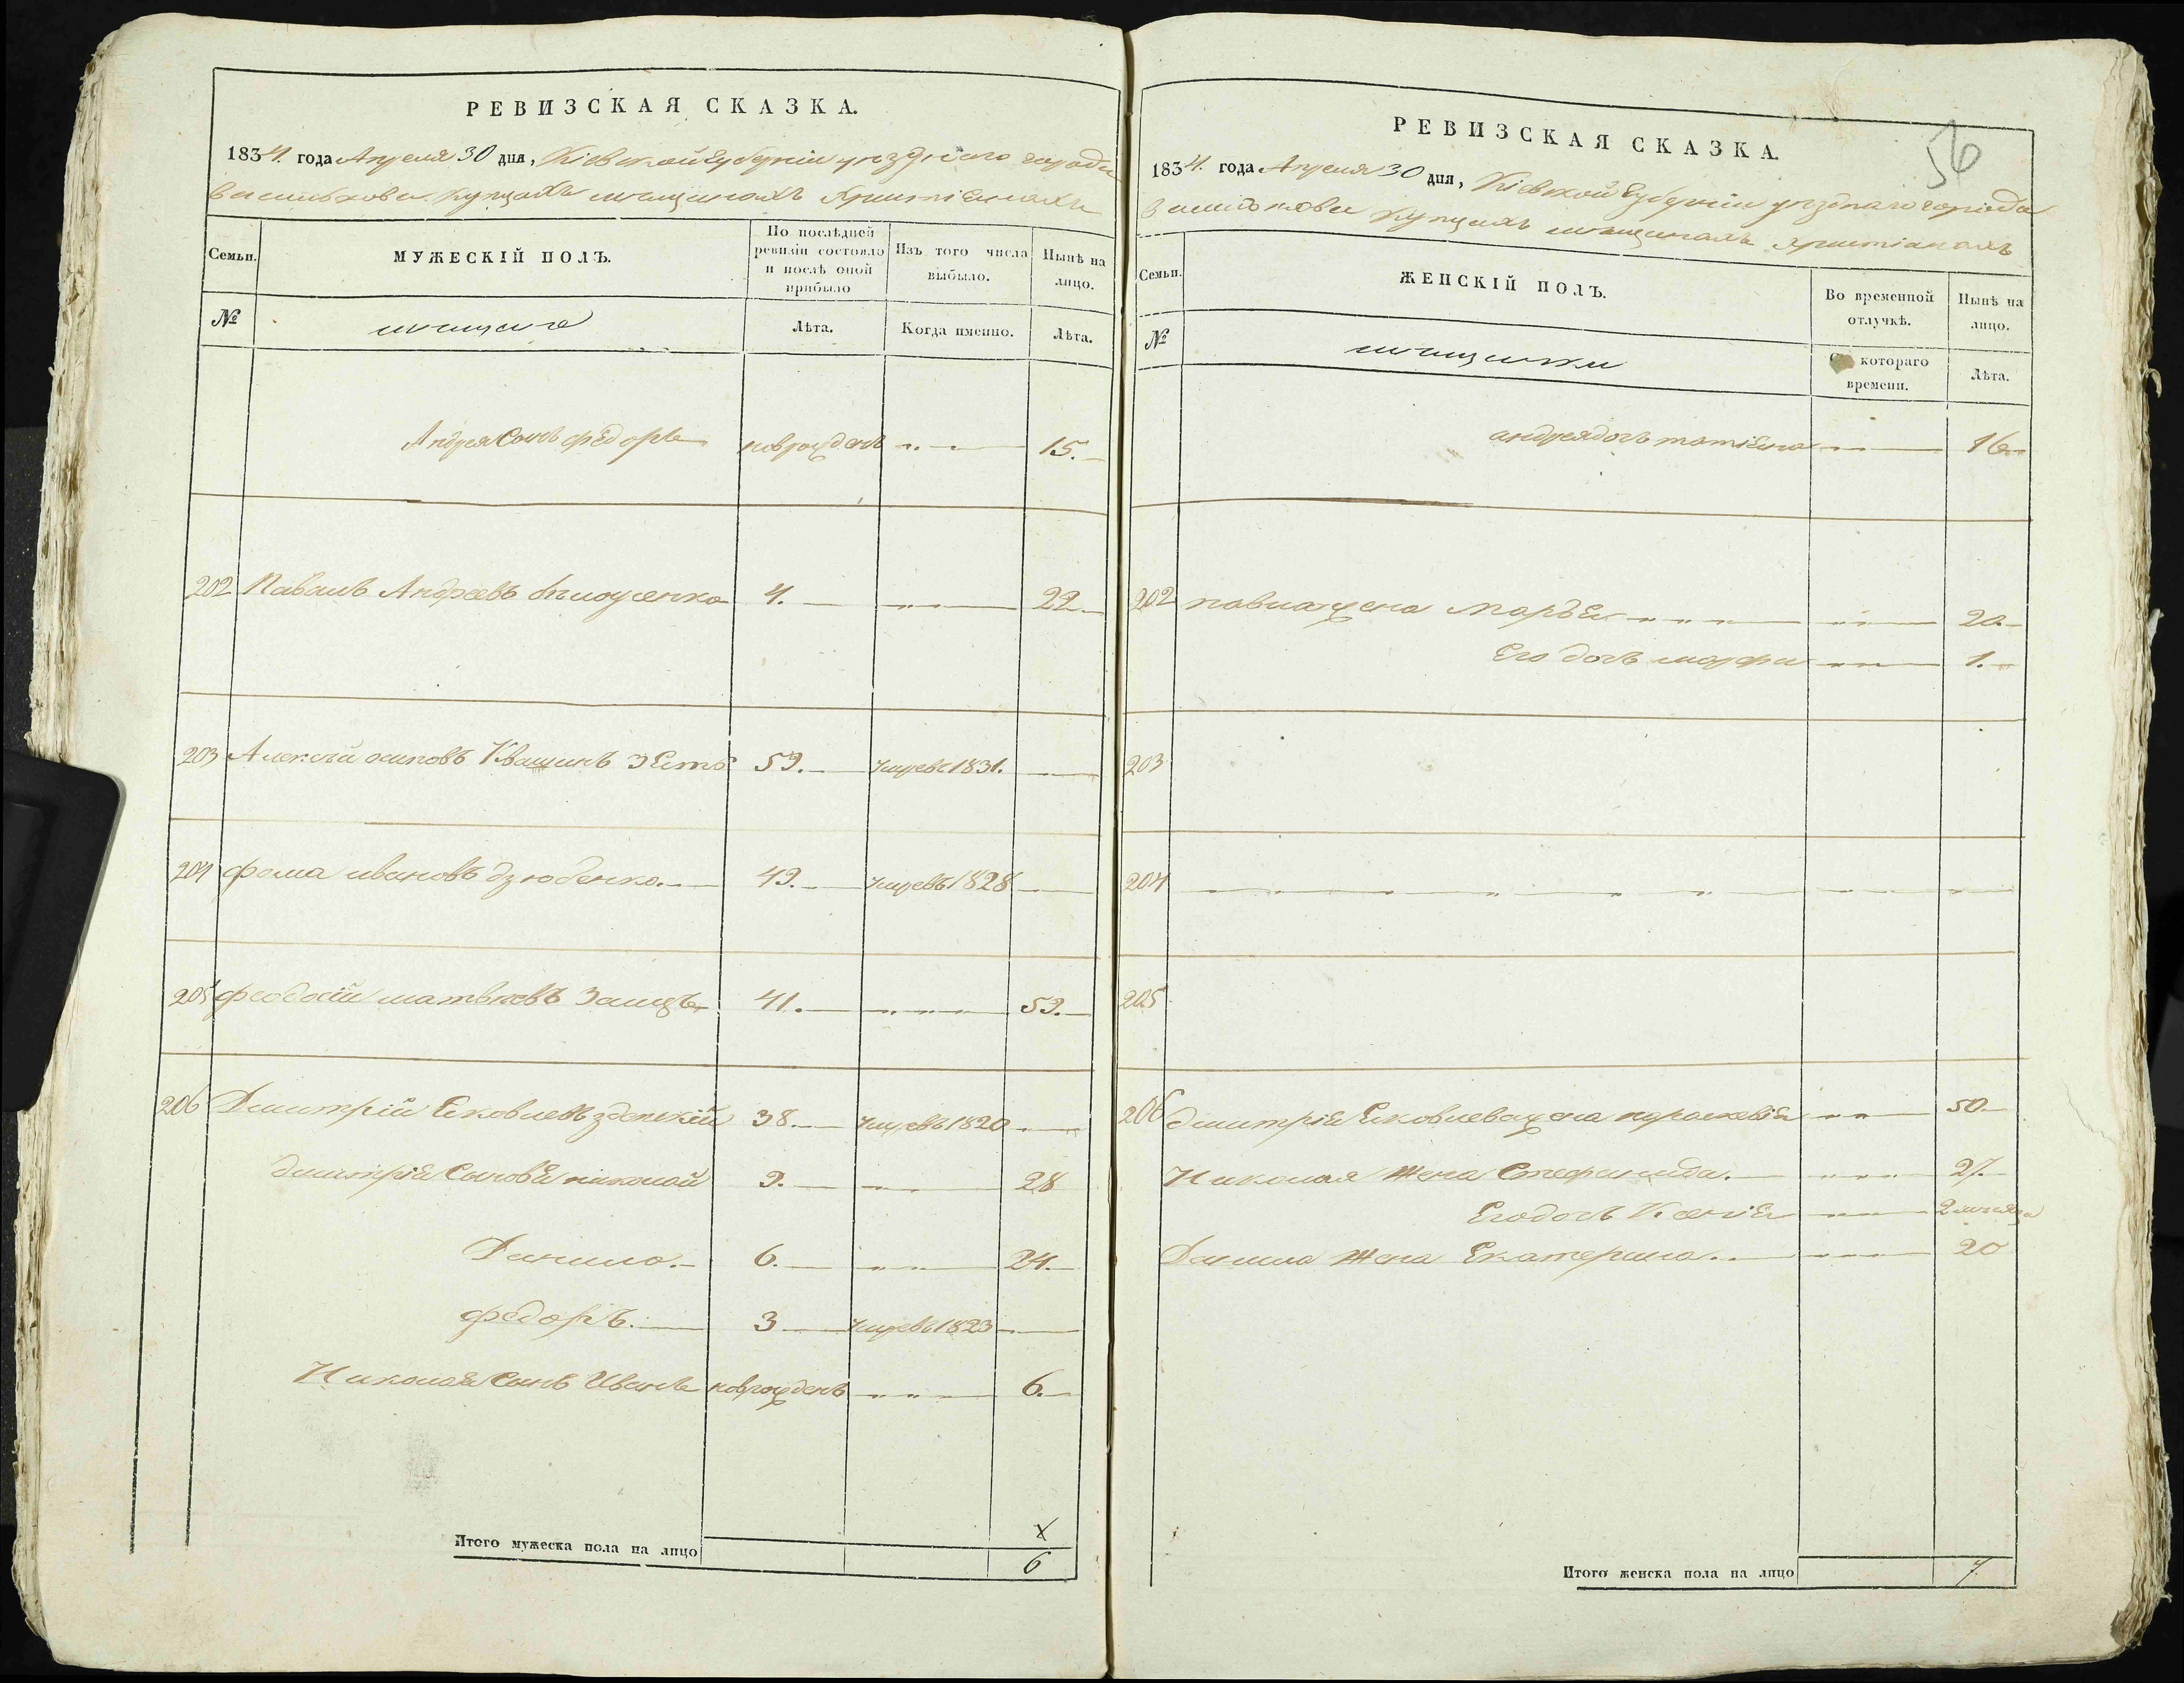 РЕВИЗСКАЯ СКАЗКА.
1834. года Апреля 30 дня, Кіевской Губерніи уезднаго города
Василькова Купцахъ мещанахъ Християнахъ
Семьи.
МУЖЕСКІЙ ПОЛЪ.
По послѣдней ревизіи состояло и послѣ оной прибыло
Изъ того числа выбыло.
Нынѣ на лицо.
№
мещане
Лѣта.
Когда именно.
Лѣта.
Андрея Сынъ федоръ новрожденъ 15.
202 Павелъ Андреевъ 4. 22
203 Алексей осиповъ Квашинъ 59. умре въ 1831.
204 фома ивановъ дзюбенко 49. умре въ 1828
205 феодосій матвеевъ Заецъ 41. 59.
206 Дмитрій Яковлевъ 38. умре въ 1820
дмитрія Сыновя николай 9. 28
Данило. 6. 24.
федоръ. 3 умре въ 1823
Николая Сынъ Иванъ новрожденъ 6.
Итого мужеска пола на лицо 6
РЕВИЗСКАЯ СКАЗКА.
56
1834. года Апреля 30 дня, Кіевской Губерніи уезднаго города
Василькова Купцахъ мещанахъ Християнахъ
Семьи.
ЖЕНСКІЙ ПОЛЪ.
Во временной отлучкѣ.
Нынѣ на лицо.
№
мещанки
котораго времени.
Лѣта.
андрея дочь татіяна 16
202 павла жена Марья 20.
Его дочь марфа 1.
203
204
205
206 дмитрія Яковлева жена параскевія 50
Николая Жена Стефанида. 27.
Его дочь Ксенія 2 месяца
Данила Жена Екатерина. 20
Итого женска пола на лицо 7.